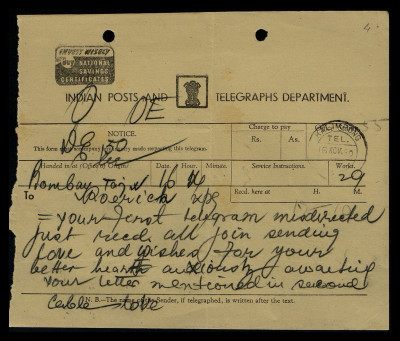 INVEST WISELY
BUY NATIONAL
SAVINGS
CERTIFICATES
INDIAN POSTS AND TELEGRAPHS DEPARTMENT.
NOTICE.
This form must accompany any inquiry made respecting this telegram
Charge to pay
Rs. As.
TEL.
Handed in at (Office of Origin). Date. Hour. Minute. Service Instructions. Words.
Bombay 29
To Recd. here at H. M.
= your first telegram misdirected
just recd. all join sending
love and wishes for your
better health anxiously awaiting
your letter mentioned in second
N. B.—The name of the Sender, if telegraphed, is written after the text.
cable =